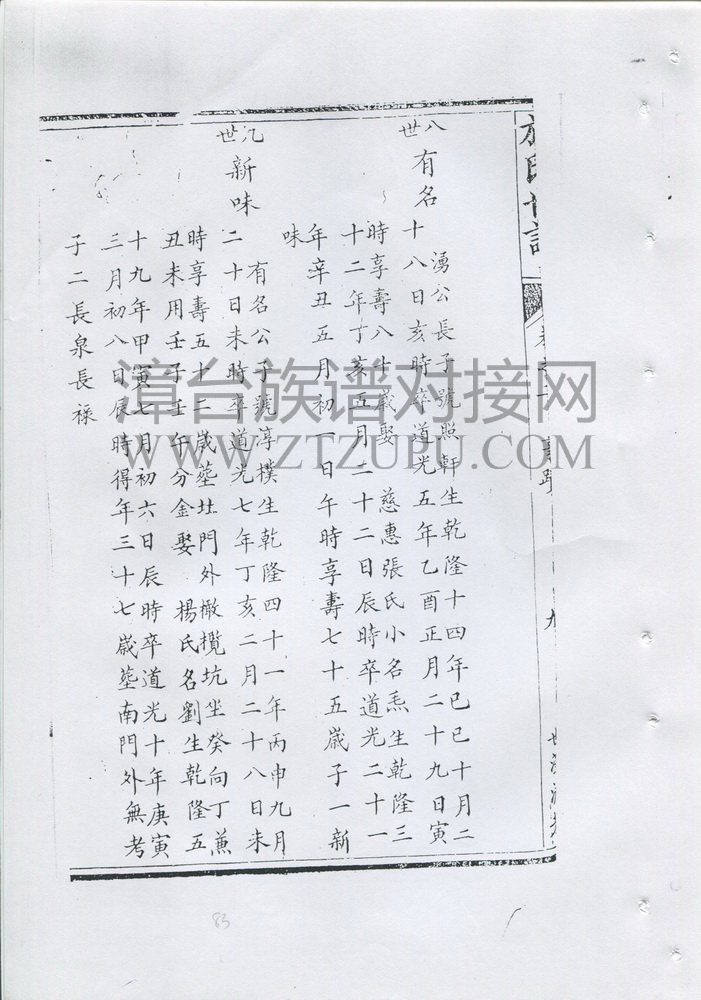 氏世譜
九
八世
有名
湧公長子號照軒生乾隆十四年已巳十月二
十八日亥時卒道光五年乙酉正月二十九日寅
時享壽八十歲娶 慈惠張氏小名生乾隆三
十二年丁亥五月二十二日辰時卒道光二十一
年辛丑五月初一日午時享壽七十五歲子一新
味
九世
新味
有名公子號淳樸生乾隆四十一年丙申九月
二十日未時卒道光七年丁亥二月二十八日未
時享壽五十二歲塟址門外橄欖坑坐癸向丁兼
丑未用壬子壬午分金娶 楊氏名劉生乾隆五
十九年甲寅七月初六日辰時卒道光十年庚寅
三月初八日辰時得年三十七歲塟南門外無考
子二長泉長祿
漳台族谱对接网
WWW.ZTZUPU.COM
83